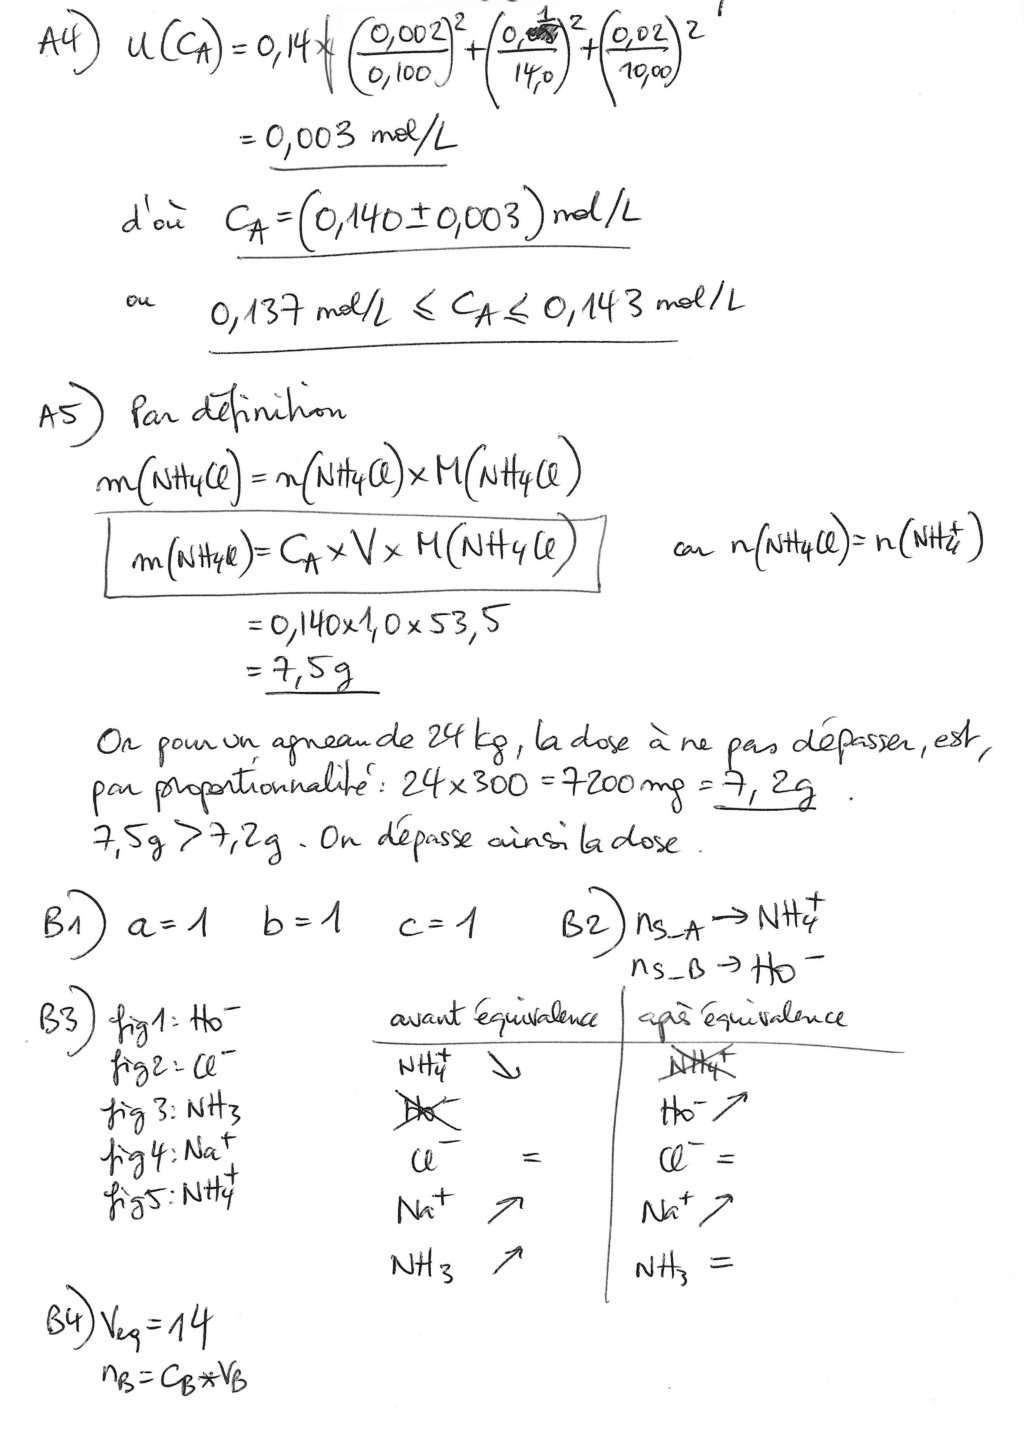 A4) u(CA) = 0,14 × √((0,002/0,100)² + (0,1/14,0)² + (0,02/10,00)²)
= 0,003 mol/L
d'où CA = (0,140 ± 0,003) mol/L
ou 0,137 mol/L ⩽ CA ⩽ 0,143 mol/L
A5) Par définition
m(NH4Cl) = n(NH4Cl) × M(NH4Cl)
m(NH4Cl) = CA × V × M(NH4Cl) car n(NH4Cl) = n(NH4+)
= 0,140 × 1,0 × 53,5
= 7,5 g
Or pour un agneau de 24 kg, la dose à ne pas dépasser, est,
par proportionnalité : 24 × 300 = 7200 mg = 7,2 g.
7,5 g > 7,2 g. On dépasse ainsi la dose.
B1) a = 1 b = 1 c = 1
B2) ns_A → NH4+
ns_B → HO−
B3) fig 1 : HO−
fig 2 : Cl−
fig 3 : NH3
fig 4 : Na+
fig 5 : NH4+
avant équivalence | après équivalence
NH4+ ↘ | NH4+
HO− | HO− ↗
Cl− = | Cl− =
Na+ ↗ | Na+ ↗
NH3 ↗ | NH3 =
B4) Veq = 14
nB = CB * VB